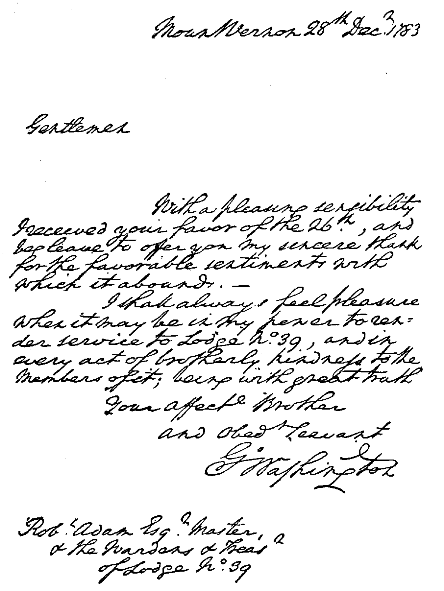 Mount Vernon 28th Decr 1783
Gentlemen
With a pleasing sensibility
I received your favor of the 26th, and
beg leave to offer you my sincere thank
for the favorable sentiments with
which it abounds. —
I shall always feel pleasure
when it may be in my power to ren-
der service to Lodge No 39, and in
every act of brotherly kindness to the
Members of it; being with great truth
Your Affecte Brother
and Obedt Servant
Go Washington
Robt Adam Esqr Master,
& the Wardens & Treasr
of Lodge No 39